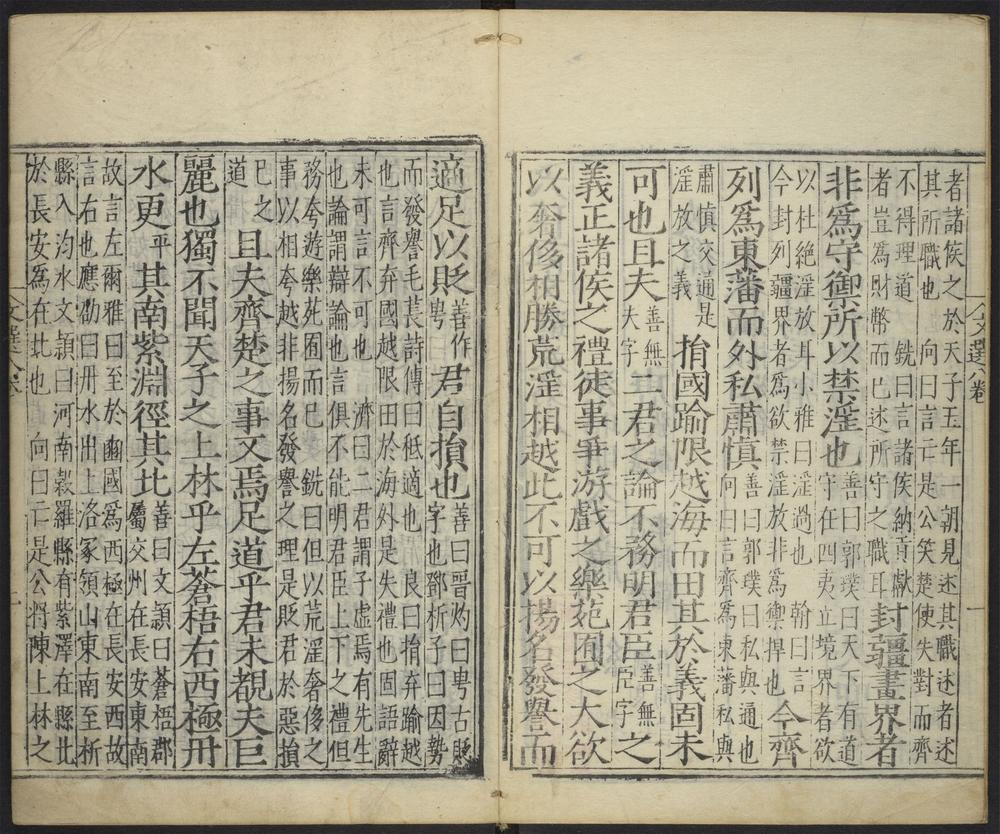 者諸侯之於天子五年一朝見述其職述者述
其所職也　向曰言亡是公笑楚使失對而齊
不得理道　銑曰言諸侯納貢獻
者豈爲財幣而已述所守之職耳
封疆畫界者
非爲守禦所以禁淫也
善曰郭璞曰天下有道
守在四夷立境界者欲
以杜絕淫放耳小雅曰淫過也　翰曰言
今封列疆界者爲欲禁淫放非爲禦捍也
今齊
列爲東藩而外私肅慎
善曰郭璞曰私與通也
向曰言齊爲東藩私與
肅慎交通是
淫放之義
捐國踰限越海而田其於義固未
可也且夫
善無
夫字
二君之論不務明君臣
善無
臣字
之
義正諸侯之禮徒事爭游戲之樂苑囿之大欲
以奢侈相勝荒淫相越此不可以揚名發譽而
文選六卷
一
適足以貶
善作
㝵
君自損也
善曰晉灼曰㝵古貶
字也鄧析子曰因勢
而發譽毛萇詩傳曰秪適也　良曰捐弃踰越
也言齊弃國越限田於海外是失禮也固語辭
未可言不可也　濟曰二君謂子虛烏有先生
也論謂辯論也言俱不能明君臣上下之禮但
務夸遊樂苑囿而已　銑曰但以荒淫奢侈之
事以相夸越非揚名發譽之理是貶君於惡損
已之
道
且夫齊楚之事又焉足道乎君未覩夫巨
麗也獨不聞天子之上林乎左蒼梧右西極丹
水更
平
其南紫淵徑其北
善曰文頴曰蒼梧郡
屬交州在長安東南
故言左爾雅曰至於豳國爲西極在長安西故
言右也應劭曰丹水出上洛冢領山東南至析
縣入汮水文頴曰河南穀羅縣有紫澤在縣北
於長安爲在北也　向曰亡是公將陳上林之